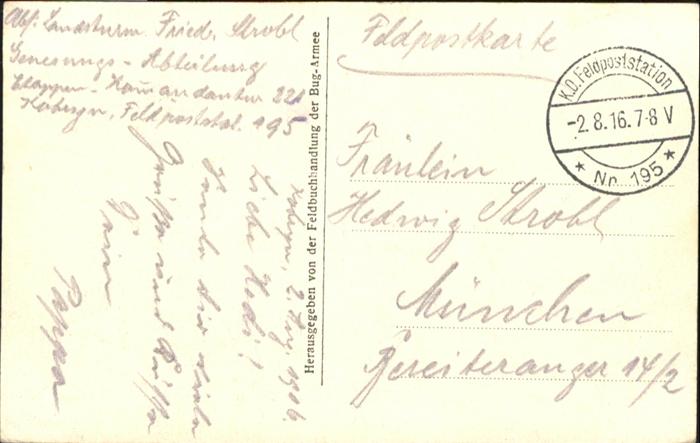 Abs: Landsturm. Fried. Strobl
Genesungs-Abteilung
Etappen-Komandantur 221
Kobryn, Feldpoststat. 195
Kobryn, 2. Aug. 1916.
Liebe Hedi!
Sende dir viele
Grüße und Küsse
Dein
Pappa
Herausgegeben von der Feldbuchhandlung der Bug-Armee
Feldpostkarte
K.D. Feldpoststation
-2.8.16.7-8 V
* Nr. 195 *
Fräulein
Hedwig Strobl
München
Bereiteranger 14/2